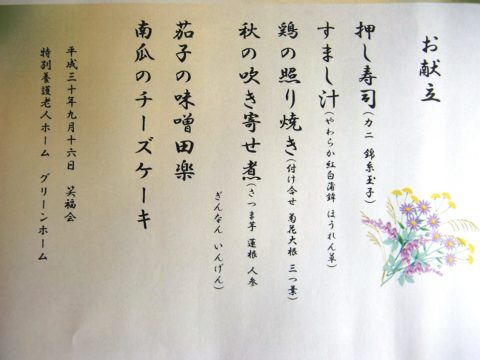 お献立
押し寿司(カニ 錦糸玉子)
すまし汁(やわらか紅白蒲鉾 ほうれん草)
鶏の照り焼き(付け合せ 菊花大根 三つ葉)
秋の吹き寄せ煮(さつま芋 蓮根 人参
ぎんなん いんげん)
茄子の味噌田楽
南瓜のチーズケーキ
平成三十年九月十六日 笑福会
特別養護老人ホーム グリーンホーム